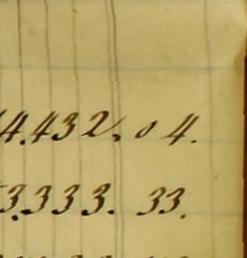 4.432, 04.
3.333. 33.